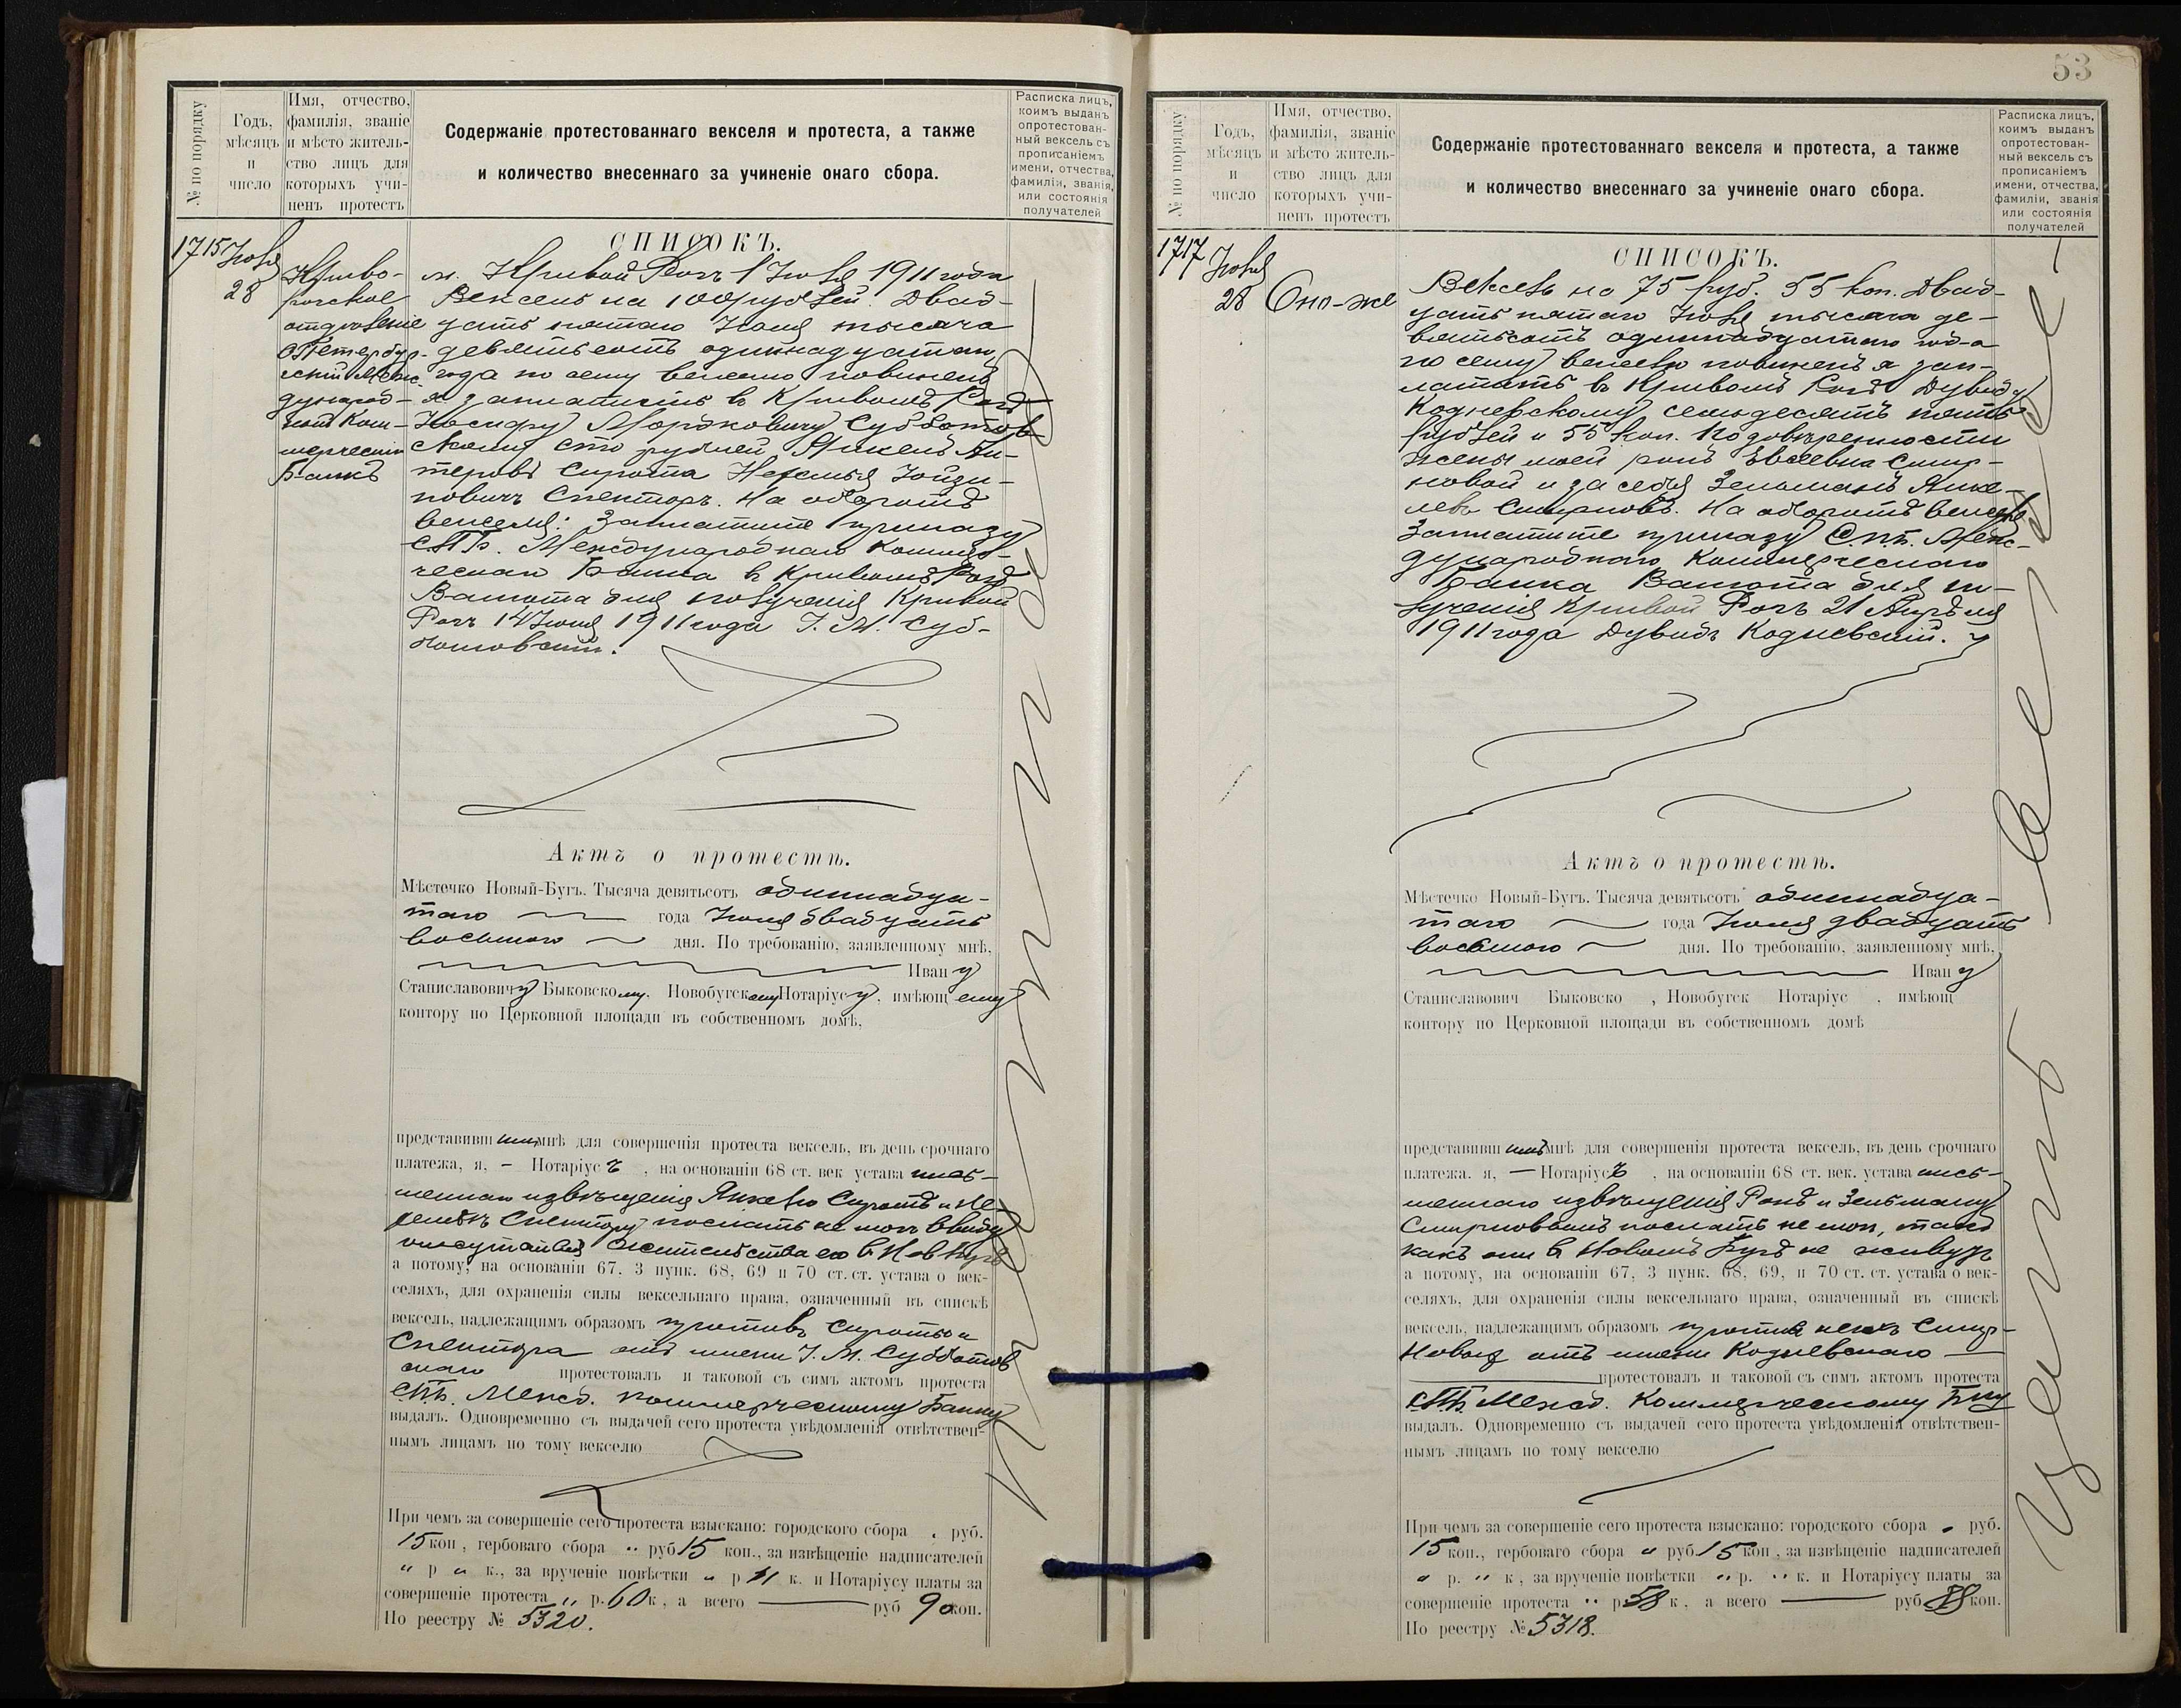 № по порядку
Годъ,
мѣсяцъ
и
число
Имя, отчество,
фамилія, званіе
и мѣсто житель-
ство лицъ для
которыхъ учи-
ненъ протестъ
Содержаніе протестованнаго векселя и протеста, а также
и количество внесеннаго за учиненіе онаго сбора.
Расписка лицъ,
коимъ выданъ
опротестован-
ный вексель съ
прописаніемъ
имени, отчества,
фамиліи, званія,
или состоянія
получателей
1715 Іюля
28
Криво-
рогское
отдѣленіе
СПетербур-
скій Меж-
дународ-
ный Ком-
мерческій
Банкъ
СПИСОКЪ.
м. Кривой Рогъ 1 Іюня 1911 года
Вексель на 100 рублей. Двад-
цать пятаго Іюля тысяча
девятьсотъ одиннадцатаго
года по сему векселю повиненъ
я заплатить въ Кривомъ Рогѣ
Мордковичу Субботов-
скому сто рублей Янкель
Сирота
Спекторъ. На оборотѣ
векселя: Заплатите приказу
СПБ. Международнаго Коммер-
ческаго Банка въ Кривомъ Рогѣ
Валюта для полученія Кривой
Рогъ 14 Іюня 1911 года І. М. Суб-
ботовскій.
Актъ о протестѣ.
Мѣстечко Новый-Бугъ. Тысяча девятьсотъ одиннадца-
таго года Іюля двадцать
восьмого дня. По требованію, заявленному мнѣ,
Ивану
Станиславовичу Быковскому, Новобугскому Нотаріусу, имѣющему
контору по Церковной площади въ собственномъ домѣ,
представившимъ мнѣ для совершенія протеста вексель, въ день срочнаго
платежа, я, — Нотаріусъ, на основаніи 68 ст. век устава пись-
меннаго извѣщенія Янкелю Сиротѣ и
Спектору послать не могъ ввиду
жительства его въ Нов Бугѣ
а потому, на основаніи 67. 3 пунк. 68, 69 и 70 ст. ст. устава о век-
селяхъ, для охраненія силы вексельнаго права, означенный въ спискѣ
вексель, надлежащимъ образомъ противъ Сироты и
Спектора отъ имени І. М. Субботов
скаго протестовалъ и таковой съ симъ актомъ протеста
СПБ. Межд. Коммерческому Банку
выдалъ. Одновременно съ выдачей сего протеста увѣдомленія отвѣтствен-
нымъ лицамъ по тому векселю
При чемъ за совершеніе сего протеста взыскано: городского сбора „ руб.
15 коп, гербоваго сбора „ руб 15 коп., за извѣщеніе надписателей
„ р „ к., за врученіе повѣстки „ р „ к. и Нотаріусу платы за
совершеніе протеста „ р. 60 к, а всего — руб 90 коп.
По реестру № 5320.
53
№ по порядку
Годъ,
мѣсяцъ
и
число
Имя, отчество,
фамилія, званіе
и мѣсто житель-
ство лицъ для
которыхъ учи-
ненъ протестъ
Содержаніе протестованнаго векселя и протеста, а также
и количество внесеннаго за учиненіе онаго сбора.
Расписка лицъ,
коимъ выданъ
опротестован-
ный вексель съ
прописаніемъ
имени, отчества,
фамиліи, званія
или состоянія
получателей
1717 Іюля
28
Оно-же
СПИСОКЪ.
Вексель на 75 руб. 55 коп. Двад-
цать пятаго Іюля тысяча де-
вятьсотъ одиннадцатаго год-а
по сему векселю повиненъ я зап-
латить въ Кривомъ Рогѣ Дувиду
Кодневскому семьдесятъ пять
рублей и 55 коп. По довѣренности
жены моей Евсеевна Смир-
новой и за себя Зельманъ Янке-
левъ Смирновъ. На оборотѣ векселя
Заплатите приказу С.П.Б. Меж-
дународнаго Коммерческаго
Банка Валюта для по-
лученія Кривой Рогъ 21 Апрѣля
1911 года Дувидъ Кодневскій.
Актъ о протестѣ.
Мѣстечко Новый-Бугъ. Тысяча девятьсотъ одиннадца-
таго года Іюля двадцать
восьмого дня. По требованію, заявленному мнѣ,
Ивану
Станиславович Быковско , Новобугск Нотаріус , имѣющ
контору по Церковной площади въ собственномъ домѣ
представившимъ мнѣ для совершенія протеста вексель, въ день срочнаго
платежа. я, — Нотаріусъ , на основаніи 68 ст. век. устава пись-
меннаго извѣщенія и Зельману
Смирновымъ послать не могъ, такъ
какъ они въ Новомъ Бугѣ не живутъ
а потому, на основаніи 67, 3 пунк. 68, 69, и 70 ст. ст. устава о век-
селяхъ, для охраненія силы вексельнаго права, означенный въ спискѣ
вексель, надлежащимъ образомъ противъ Смир-
новыхъ отъ имени Кодневскаго —
протестовалъ и таковой съ симъ актомъ протеста
СПБ. Межд. Коммерческому Бку
выдалъ. Одновременно съ выдачей сего протеста увѣдомленія отвѣтствен-
нымъ лицамъ по тому векселю
При чемъ за совершеніе сего протеста взыскано: городского сбора „ руб.
15 коп., гербоваго сбора „ руб. 15 коп, за извѣщеніе надписателей
„ р. „ к, за врученіе повѣстки „ р. „ к. и Нотаріусу платы за
совершеніе протеста „ р 58 к, а всего — руб. 88 коп.
По реестру № 5318.